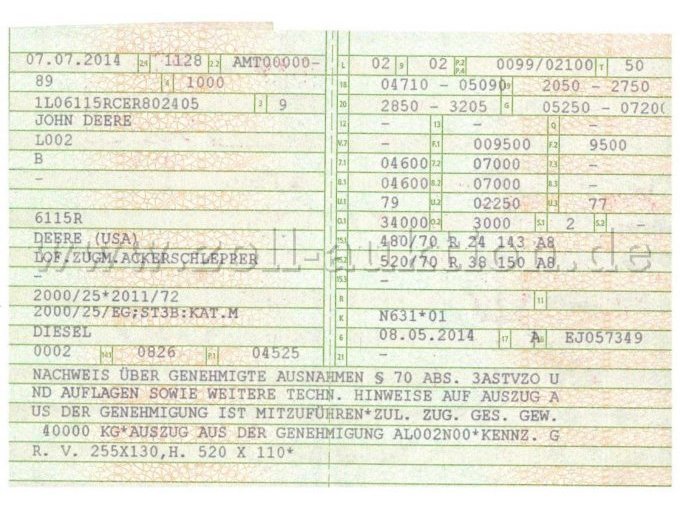 07.07.2014 2.1 1128 2.2 AMT00000-
89 4 1000
1L06115RCER802405 3 9
JOHN DEERE
L002
B
-
6115R
DEERE (USA)
LOF.ZUGM.ACKERSCHLEPPER
-
2000/25*2011/72
2000/25/EG;ST3B:KAT.M
DIESEL
0002 14.1 0826 P.1 04525
L 02 9 02 P.2 P.4 0099/02100 T 50
18 04710 - 05090 19 2050 - 2750
20 2850 - 3205 G 05250 - 0720
12 - 13 - Q -
V.7 - F.1 009500 F.2 9500
7.1 04600 7.2 07000 7.3 -
8.1 04600 8.2 07000 8.3 -
U.1 79 U.2 02250 U.3 77
O.1 34000 O.2 3000 S.1 2 S.2 -
15.1 480/70 R 24 143 A8
15.2 520/70 R 38 150 A8
15.3 -
R 11
K N631*01
6 08.05.2014 17 A 16 EJ057349
21 -
NACHWEIS ÜBER GENEHMIGTE AUSNAHMEN § 70 ABS. 3ASTVZO U
ND AUFLAGEN SOWIE WEITERE TECHN. HINWEISE AUF AUSZUG A
US DER GENEHMIGUNG IST MITZUFÜHREN*ZUL. ZUG. GES. GEW.
40000 KG*AUSZUG AUS DER GENEHMIGUNG AL002N00*KENNZ. G
R. V. 255X130,H. 520 X 110*
www.zoll-auktion.de